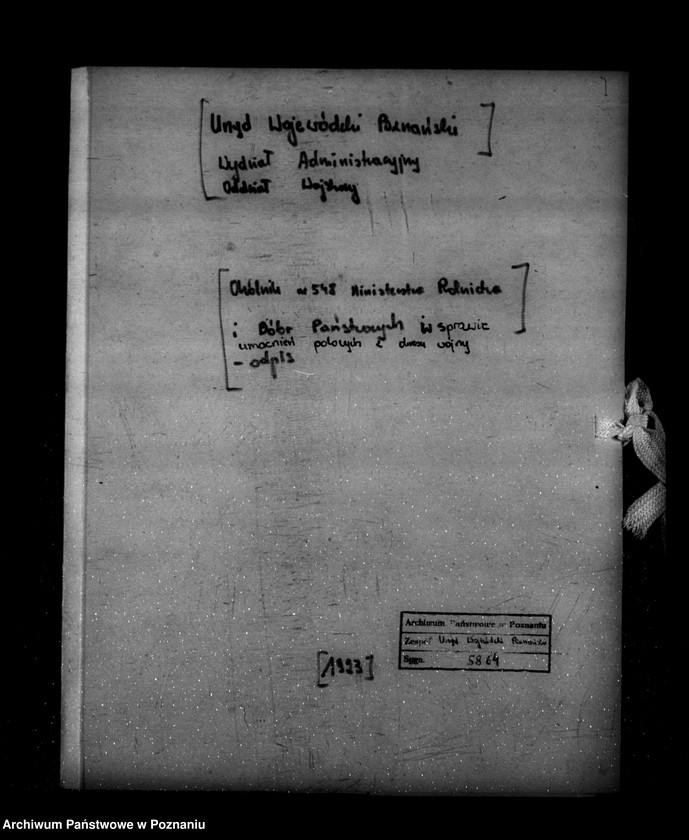 [Urząd Wojewódzki Poznański]
Wydział Administracyjny
Oddział Wojskowy
[Okólnik nr 548 Ministerstwa Rolnictwa
i Dóbr Państwowych w sprawie]
umocnień polowych z czasu wojny
- odpis
Archiwum Państwowe w Poznaniu
Zespół Urząd Wojewódzki Poznański
Sygn. 5864
[1923]
Archiwum Państwowe w Poznaniu